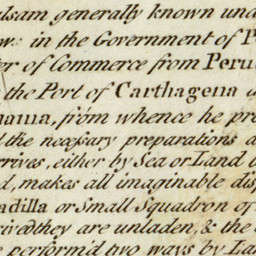 alsam generally known und
w: in the Government of P
er of Commerce from Peru
the Port of Carthagena
nama, from whence he pro
the necessary preparations a
rrives, either by Sea or Land
d, makes all imaginable dis
adilla or Small Squadron of
rived they are unladen, & the
e perform'd two ways by Lan